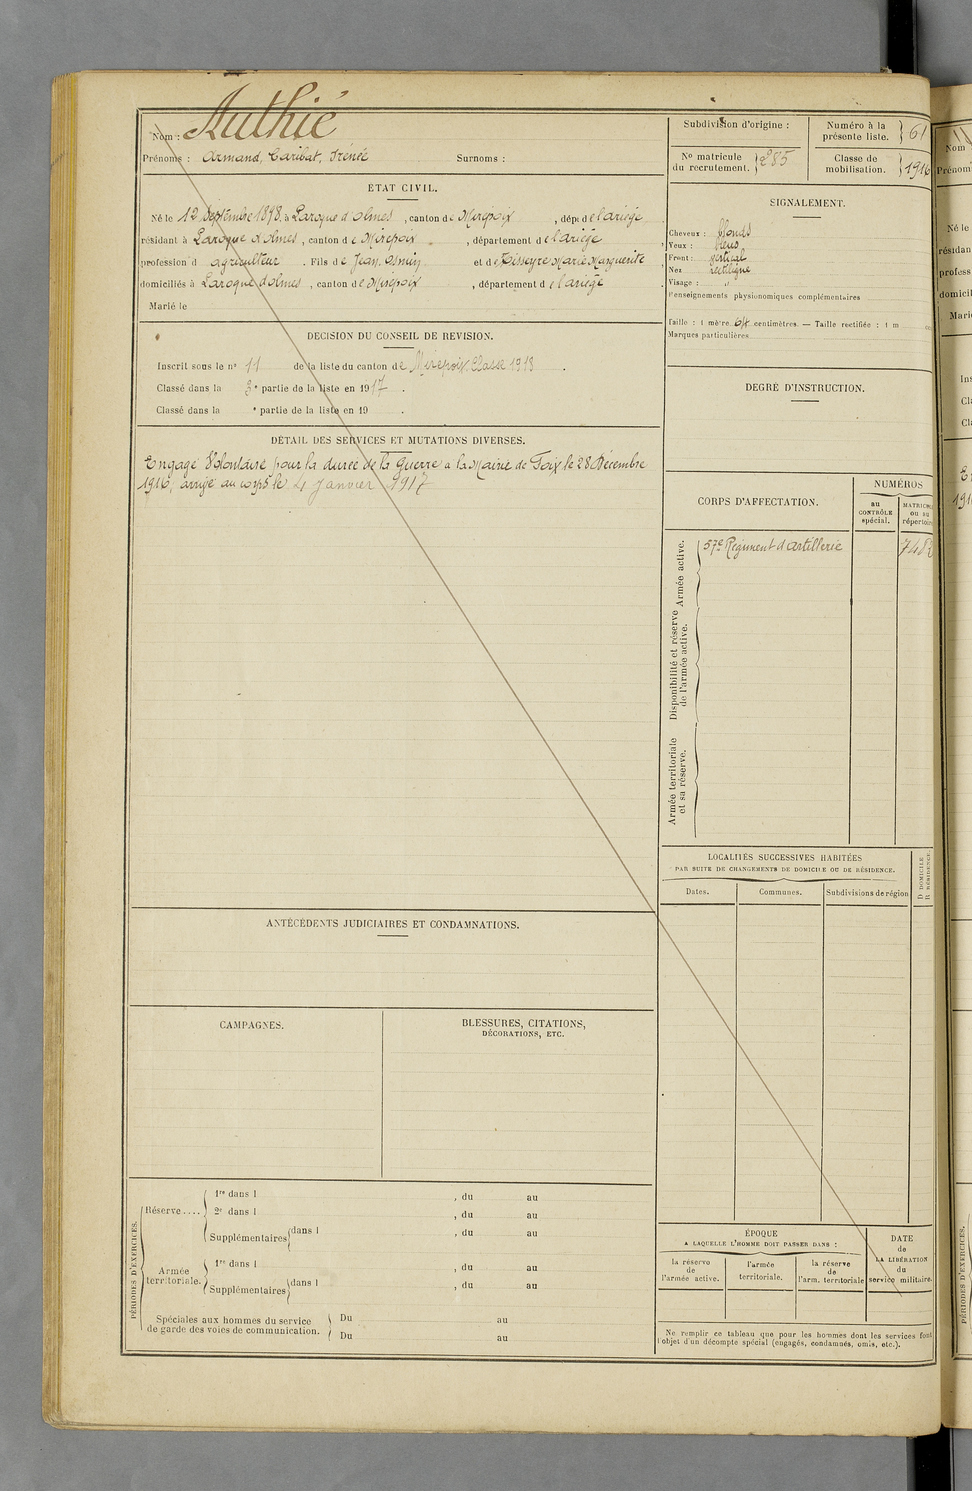 Nom : Authié
Prénoms : Armand, Caribat, Irénée Surnoms :
ETAT CIVIL.
Né le 12 Septembre 1898, à Laroque d'olmes, canton de Mirepoix, dépt de l'ariège
résidant à Laroque d'olmes, canton de Mirepoix, département de l'ariège
profession d agriculteur. Fils de Jean, Osmin et de Pisseyre Marie Marguerite
domiciliés à Laroque d'olmes, canton de Mirepoix, département de l'ariège
Marié le
DECISION DU CONSEIL DE REVISION.
Inscrit sous le n° 11 de la liste du canton de Mirepoix Classe 1918.
Classé dans la 3e partie de la liste en 1917.
Classé dans la e partie de la liste en 19 .
DÉTAIL DES SERVICES ET MUTATIONS DIVERSES.
Engagé Volontaire pour la durée de la Guerre a la Mairie de Foix le 28 Décembre
1916, arrivé au corps le 4 Janvier 1917
ANTÉCÉDENTS JUDICIAIRES ET CONDAMNATIONS.
CAMPAGNES.
BLESSURES, CITATIONS,
DÉCORATIONS, ETC.
PÉRIODES D'EXERCICES.
Réserve....
1re dans l , du au
2e dans l , du au
Supplémentaires dans l , du au
Armée
territoriale.
1re dans l , du au
Supplémentaires dans l , du au
Spéciales aux hommes du service
de garde des voies de communication.
Du au
Du au
Subdivision d'origine :
Numéro à la
présente liste. 61
No matricule
du recrutement. 285
Classe de
mobilisation. 1916
SIGNALEMENT.
Cheveux : blonds
Yeux : bleus
Front : vertical
Nez rectiligne
Visage : "
Renseignements physionomiques complémentaires
Taille : 1 mètre 64 centimètres. — Taille rectifiée : 1 m
Marques particulières
DEGRÉ D'INSTRUCTION.
CORPS D'AFFECTATION.
NUMÉROS
au
CONTRÔLE
spécial.
MATRICULE
ou au
répertoire
Armée active.
57e Régiment d'artillerie
7482
Disponibilité et réserve
de l'armée active.
Armée territoriale
et sa réserve.
LOCALITÉS SUCCESSIVES HABITÉES
PAR SUITE DE CHANGEMENTS DE DOMICILE OU DE RÉSIDENCE.
D DOMICILE
R RÉSIDENCE
Dates. Communes. Subdivisions de région
ÉPOQUE
A LAQUELLE L'HOMME DOIT PASSER DANS :
la réserve
de
l'armée active.
l'armée
territoriale.
la réserve
de
l'arm. territoriale
DATE
de
LA LIBÉRATION
du
service militaire.
Ne remplir ce tableau que pour les hommes dont les services font
l'objet d'un décompte spécial (engagés, condamnés, omis, etc.).
Nom
Prénom
Né le
résidan
profess
domicil
Mari
Ins
Cla
Cla
PÉRIODES D'EXERCICES.